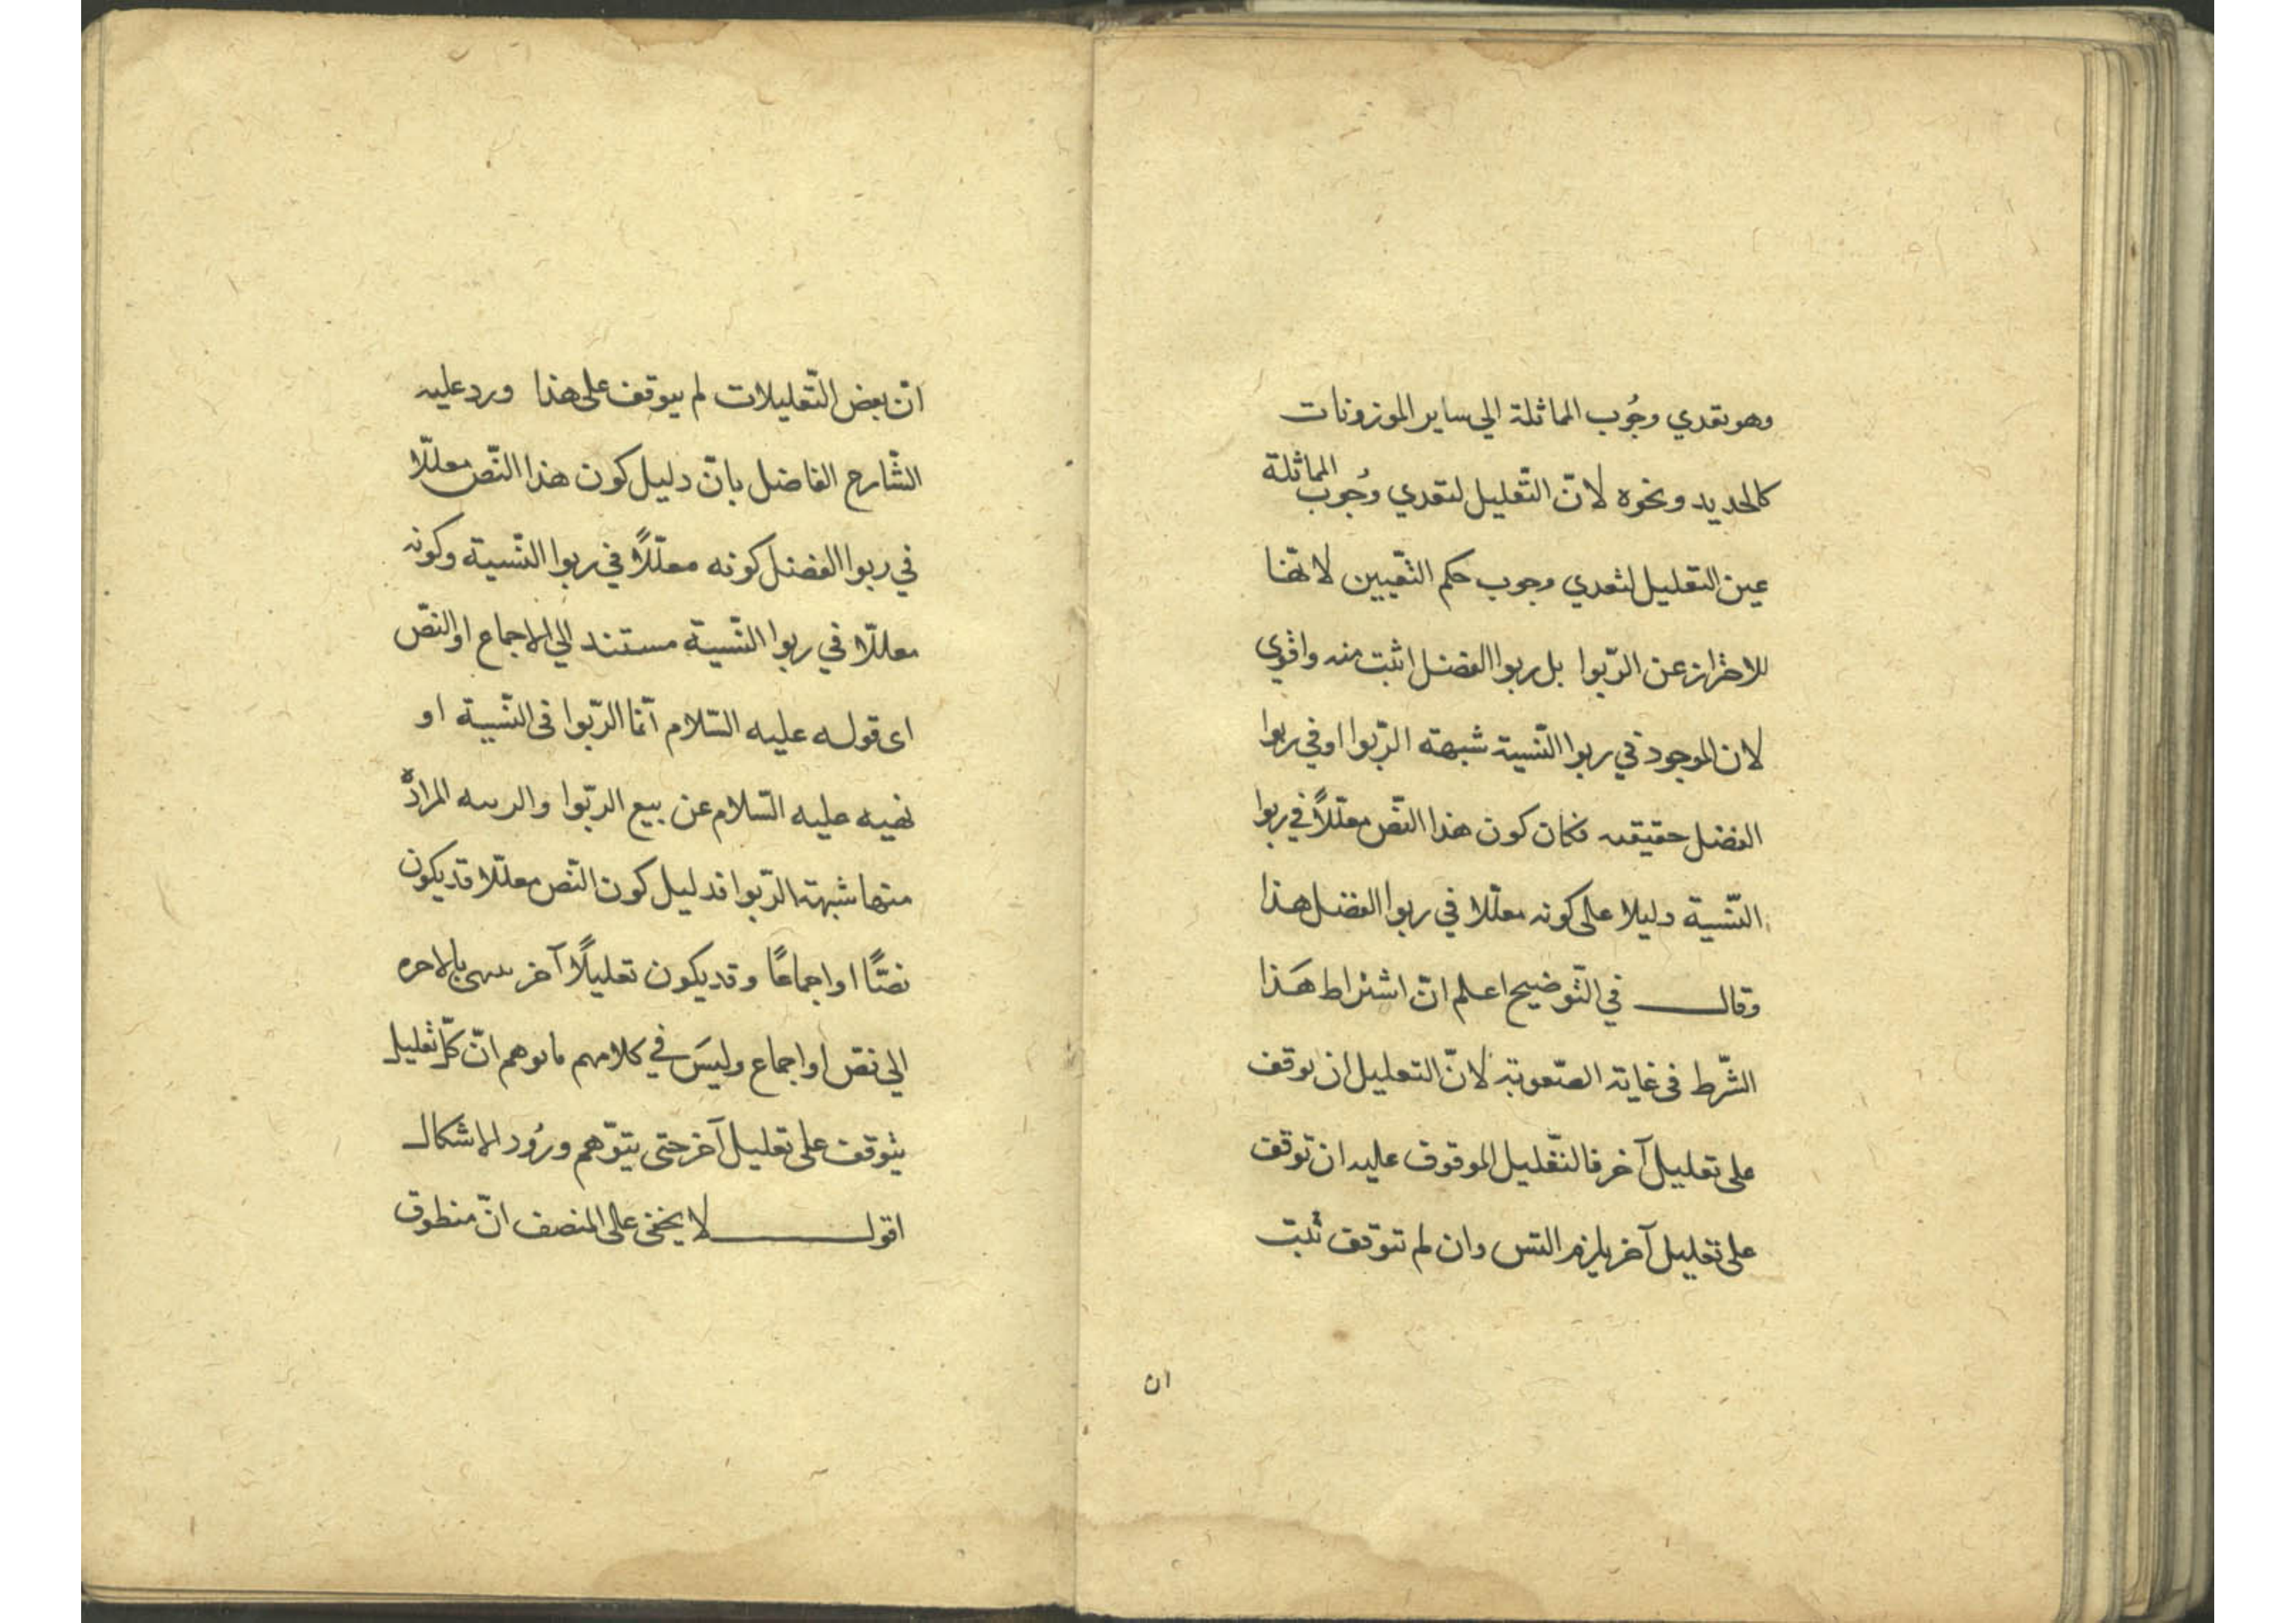 وهو تعدي وجُوب المماثلة الي ساير الموزونات
كالحديد ونحوه لانّ التّعليل لتعدي وجُوب المماثلة
عين التعليل لتعدي وجوب حكم التّعيين لانهّا
للاحتراز عن الرّبوا بل ربوا الفضل اثبت منه واقوي
لان الموجود في ربوا النّسية شبهة الرّبوا او في ربوا
الفضل حقيقته فكان كون هذا النّص معلّلاً في ربوا
النّسية دليلا على كونه معلّلا في ربوا الفضل هذا
وقال في التّوضيح اعلم انّ اشتراط هَذا
الشّرط في غاية الصّعوبة لانّ التعليل ان توقف
على تعليل آخر فالتّعليل الموقوف عليه ان توقف
على تعليل آخر يلزم التس وان لم تتوقف ثبت
ان
انّ بعض التّعليلات لم يتوقف على هذا ورد عليه
الشّارح الفاضل بانّ دليل كون هذا النّص معللّا
في ربوا الفضل كونه معلّلاً في ربوا النّسية وكونه
معللّا في ربوا النّسية مستند الي الاجماع او النصّ
اى قوله عليه السّلام انّما الرّبوا فى النّسية او
نهيه عليه السّلام عن بيع الرّبوا والريبه المراد
منها شبهة الرّبوا فدليل كون النّص معلّلا قد يكون
نصًّا او اجماعًا وقد يكون تعليلًا آخر ينتهى بالاخره
الى نصّ او اجماع وليسَ في كلامهم ما يوهم انّ كلّ تعليل
يتوقف على تعليل آخر حتى يتوّهم ورُود الاشكال
اقول لا يخفى على المنصف انّ منطوق